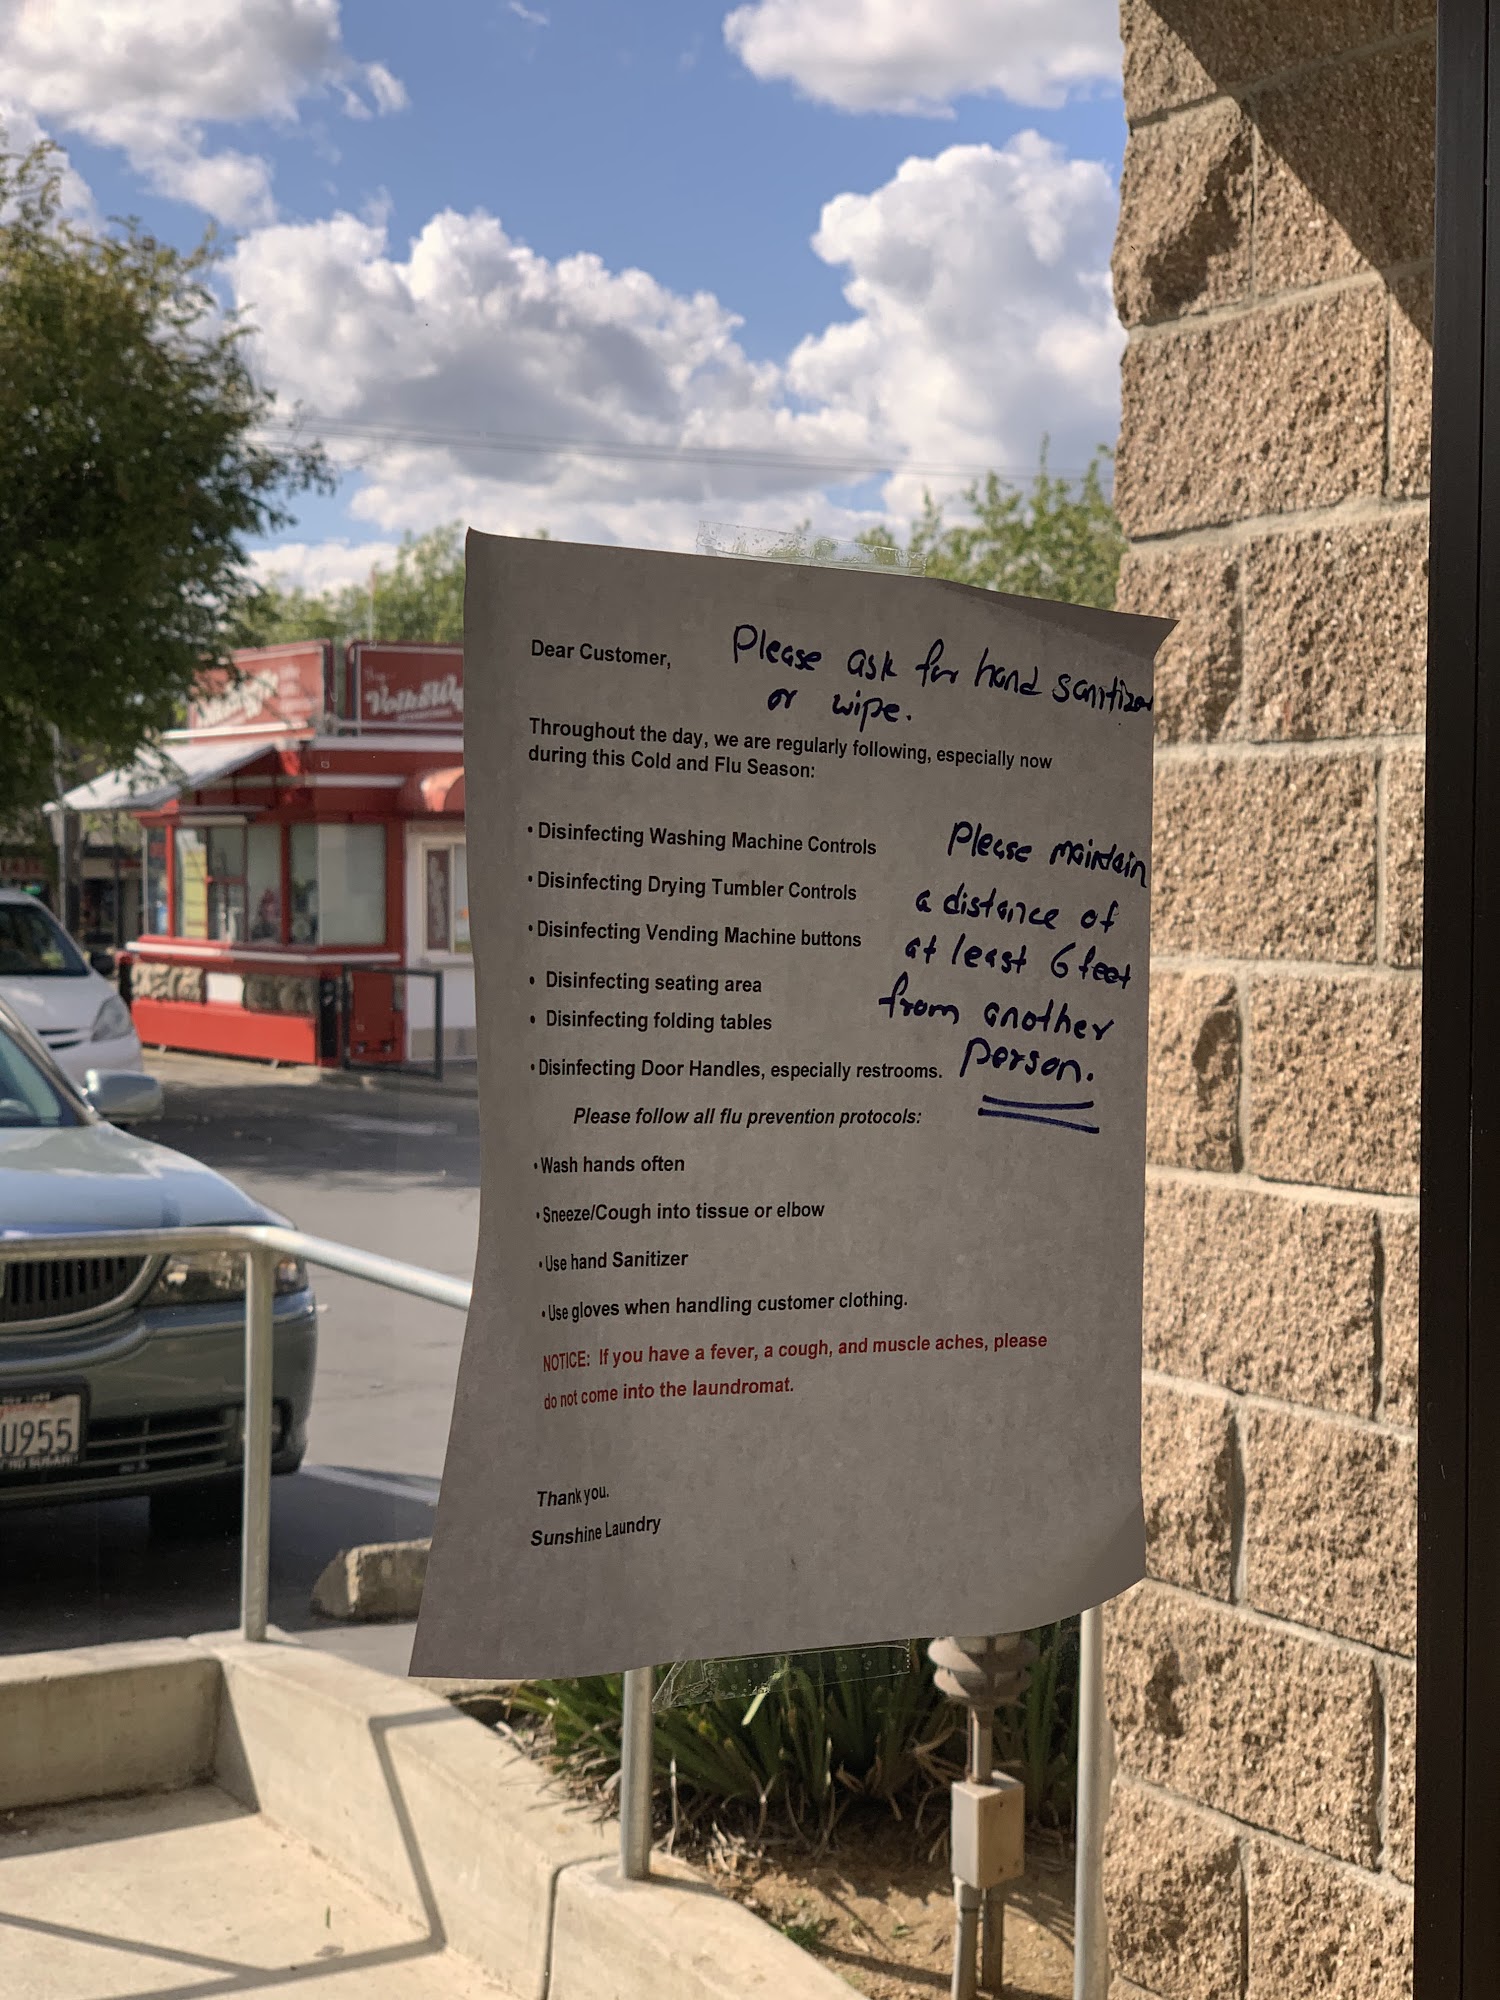 Dear Customer,
Please ask for hand sanitizer
or wipe.
Throughout the day, we are regularly following, especially now
during this Cold and Flu Season:
• Disinfecting Washing Machine Controls
• Disinfecting Drying Tumbler Controls
• Disinfecting Vending Machine buttons
• Disinfecting seating area
• Disinfecting folding tables
• Disinfecting Door Handles, especially restrooms.
Please maintain
a distance of
at least 6 feet
from another
person.
Please follow all flu prevention protocols:
• Wash hands often
• Sneeze/Cough into tissue or elbow
• Use hand Sanitizer
• Use gloves when handling customer clothing.
NOTICE: If you have a fever, a cough, and muscle aches, please
do not come into the laundromat.
Thank you.
Sunshine Laundry
U955